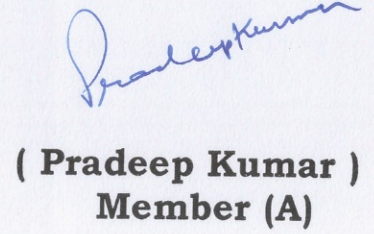 PradeepKumar
( Pradeep Kumar )
Member (A)